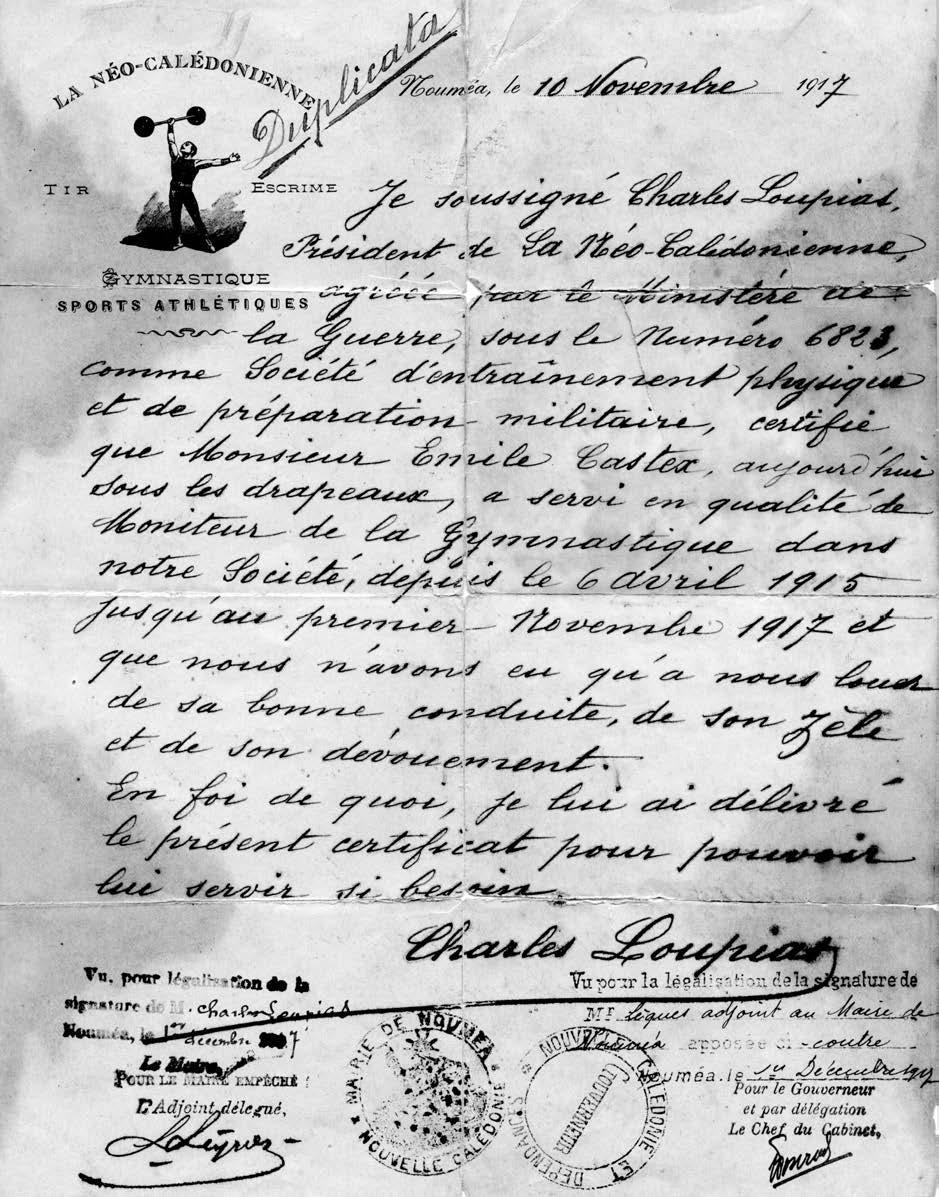 LA NÉO-CALÉDONIENNE
Duplicata
Nouméa, le 10 Novembre 1917
TIR
ESCRIME
GYMNASTIQUE
SPORTS ATHLÉTIQUES
Je soussigné Charles Loupias,
Président de La Néo-Calédonienne,
agréée par le Ministère de
la Guerre, sous le Numéro 6823,
comme Société d'entraînement physique
et de préparation militaire, certifie
que Monsieur Emile Castex, aujourd'hui
sous les drapeaux, a servi en qualité de
Moniteur de la Gymnastique dans
notre Société, depuis le 6 avril 1915
jusqu'au premier Novembre 1917 et
que nous n'avons eu qu'a nous louer
de sa bonne conduite, de son zèle
et de son dévouement.
En foi de quoi, je lui ai délivré
le présent certificat pour pouvoir
lui servir si besoin
Charles Loupias
Vu, pour légalisation de la
signature de M. Charles Loupias
Nouméa, le 1er décembre 1917
Le Maire,
POUR LE MAIRE EMPÊCHÉ
L'Adjoint délegué,
MAIRIE DE NOUMÉA
NOUVELLE CALÉDONIE
NOUVELLE CALEDONIE ET DEPENDANCES
GOUVERNEUR
Vu pour la légalisation de la signature de
Mr Lèques adjoint au Maire de
Nouméa apposée ci-contre
Nouméa, le 1er Décembre 1917
Pour le Gouverneur
et par délégation
Le Chef du Cabinet,